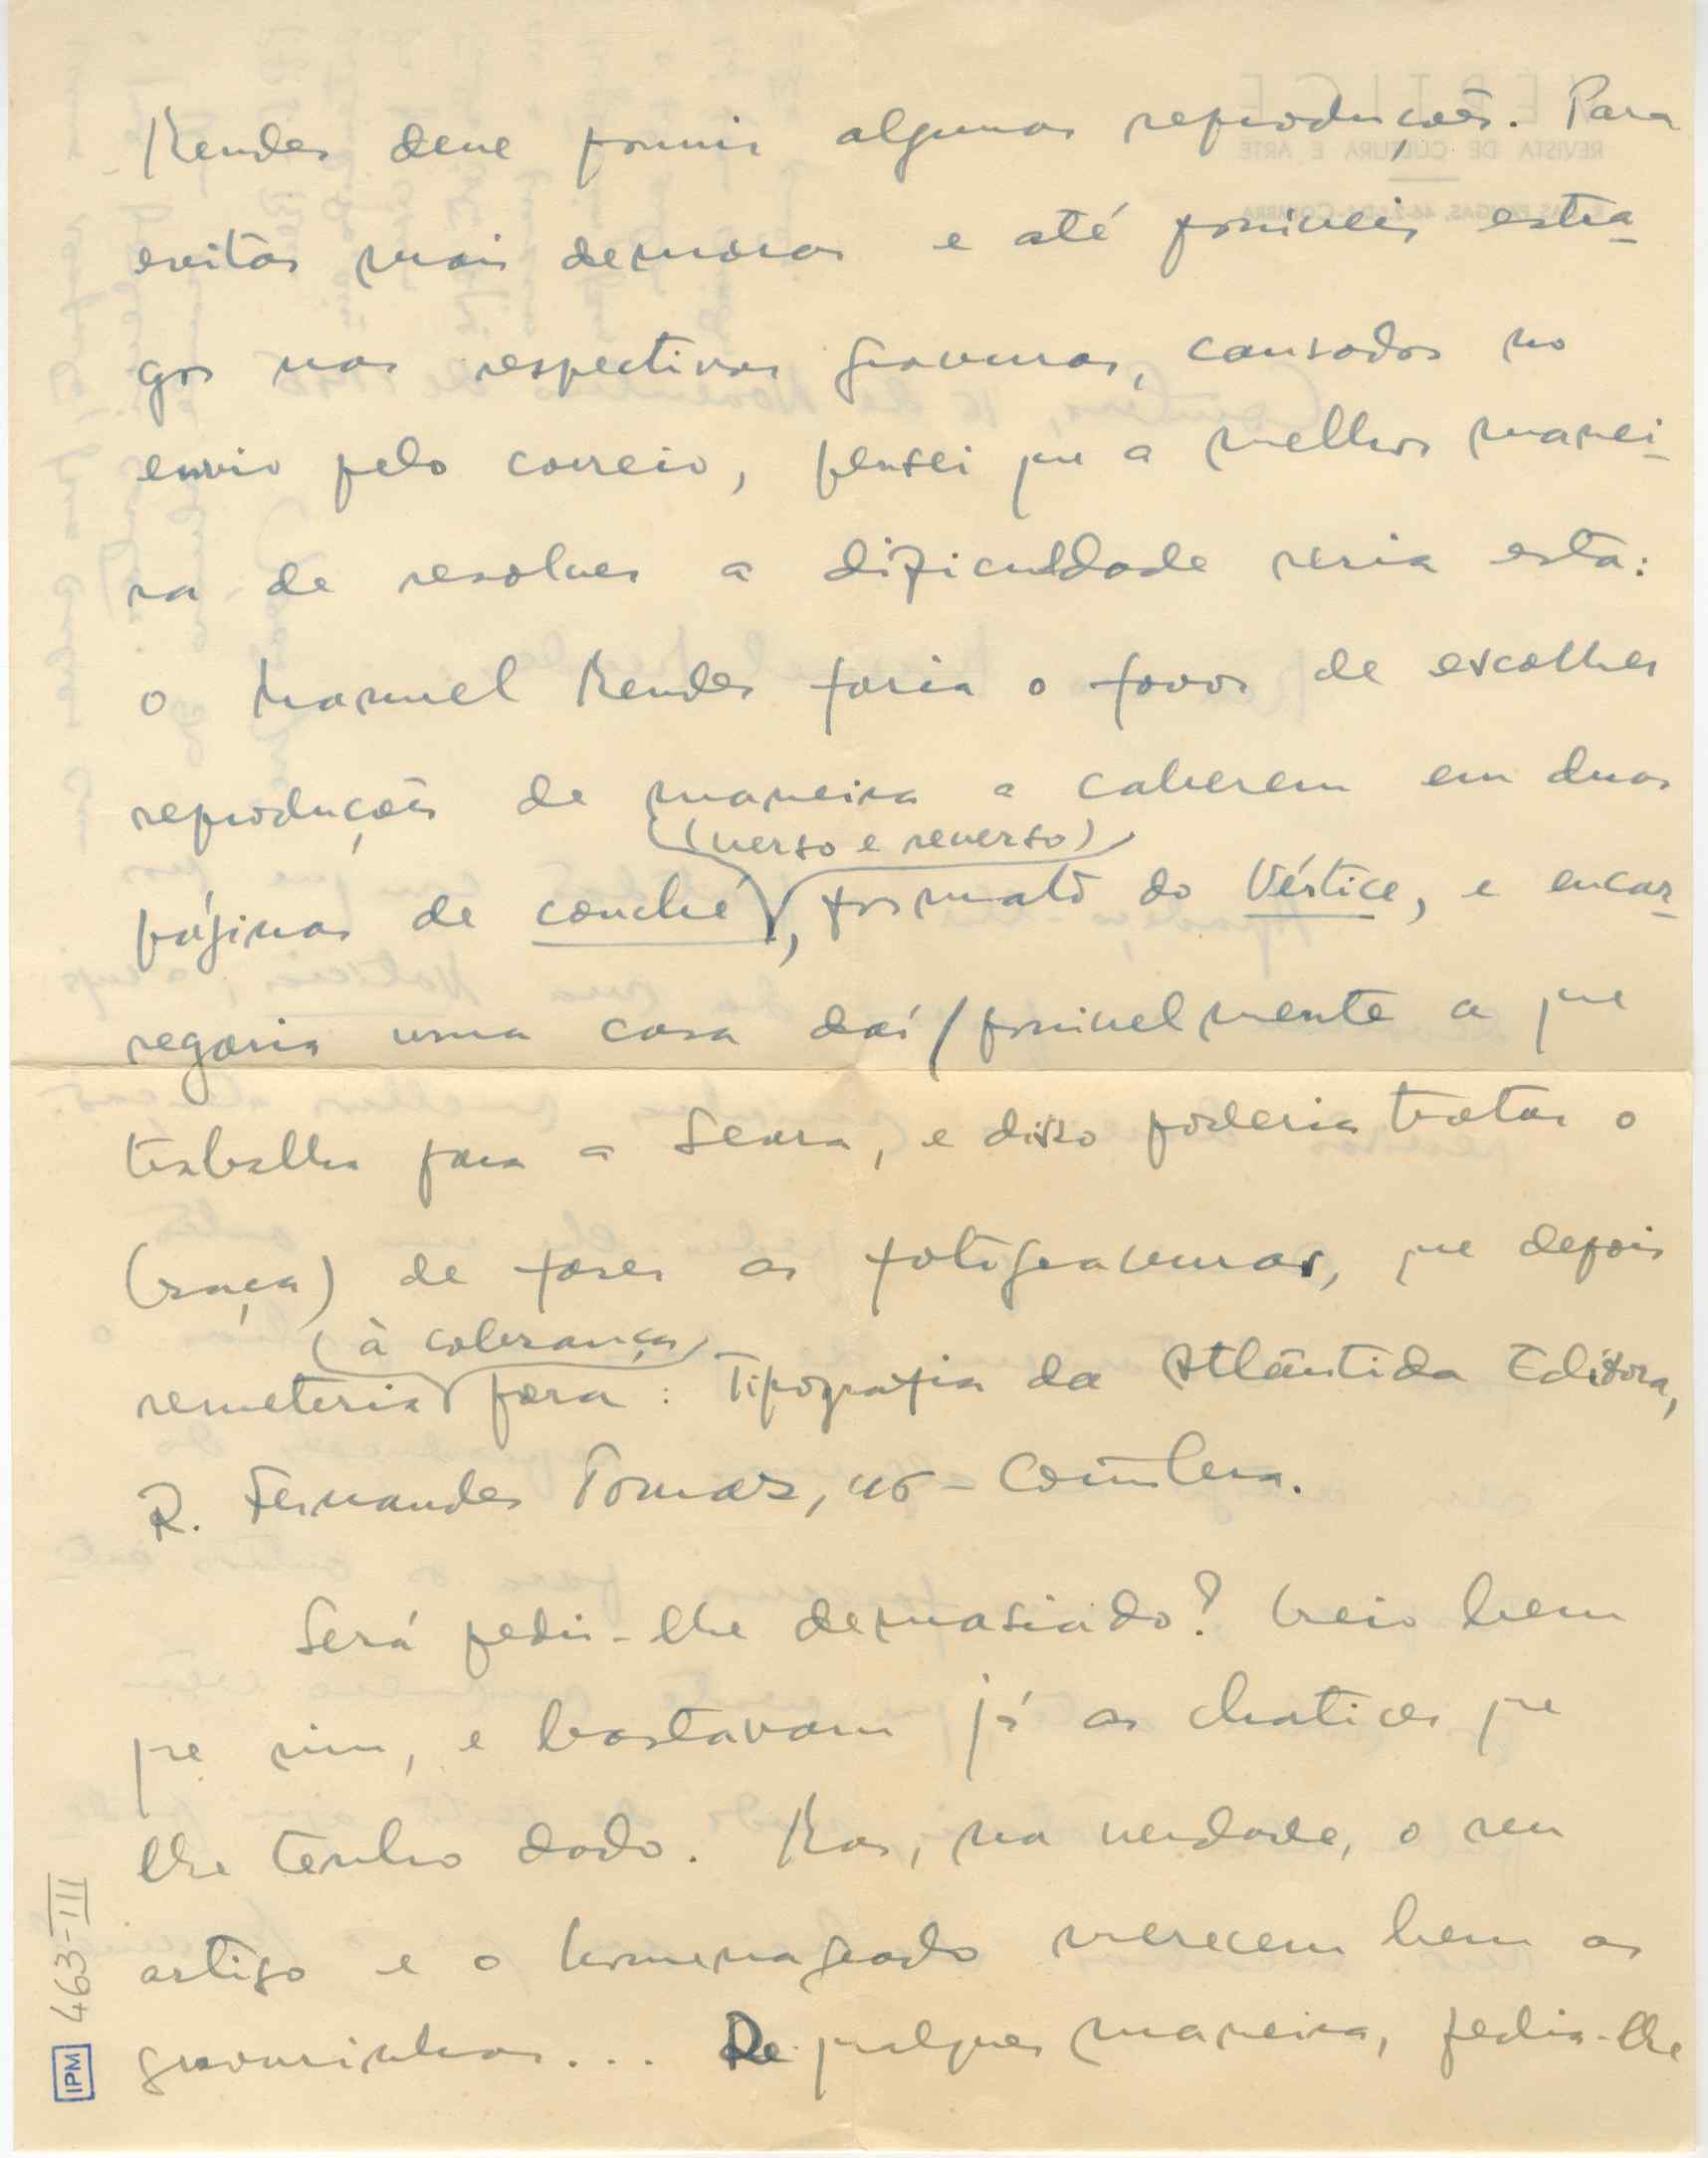 Mendes deve possuir algumas reproduções. Para
evitar mais demoras e até possíveis estra-
gos nas respectivas gravuras, causados no
envio pelo correio, pensei que a melhor manei-
ra de resolver a dificuldade seria esta:
o Manuel Mendes faria o favor de escolher
reproduções de maneira a caberem em duas
(verso e reverso)
páginas de couché, formato do Vértice, e encar-
regaria uma casa daí (possivelmente a que
trabalha para a Seara, e disso poderia tratar o
Braga) de fazer as fotogravuras, que depois
(à cobrança)
remeteria para: Tipografia da Atlântida Editora,
R. Fernandes Tomaz, 46 - Coimbra.
Será pedir-lhe demasiado? Creio bem
que sim, e bastavam já as chatices que
lhe tenho dado. Mas, na verdade, o seu
artigo e o homenageado merecem bem as
gravurinhas.... De qualquer maneira, pedia-lhe
IPM 463-III